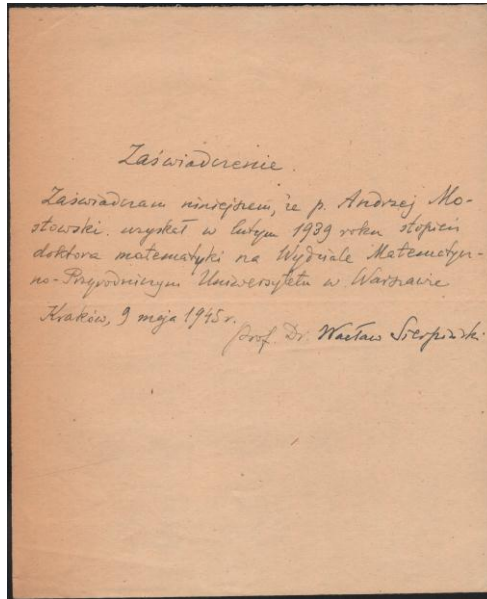 Zaświadczenie.
Zaświadczam niniejszem, że p. Andrzej Mo-
stowski uzyskał w lutym 1939 roku stopień
doktora matematyki na Wydziale Matematycz-
no-Przyrodniczym Uniwersytetu w Warszawie
Kraków, 9 maja 1945 r.
prof. Dr. Wacław Sierpiński